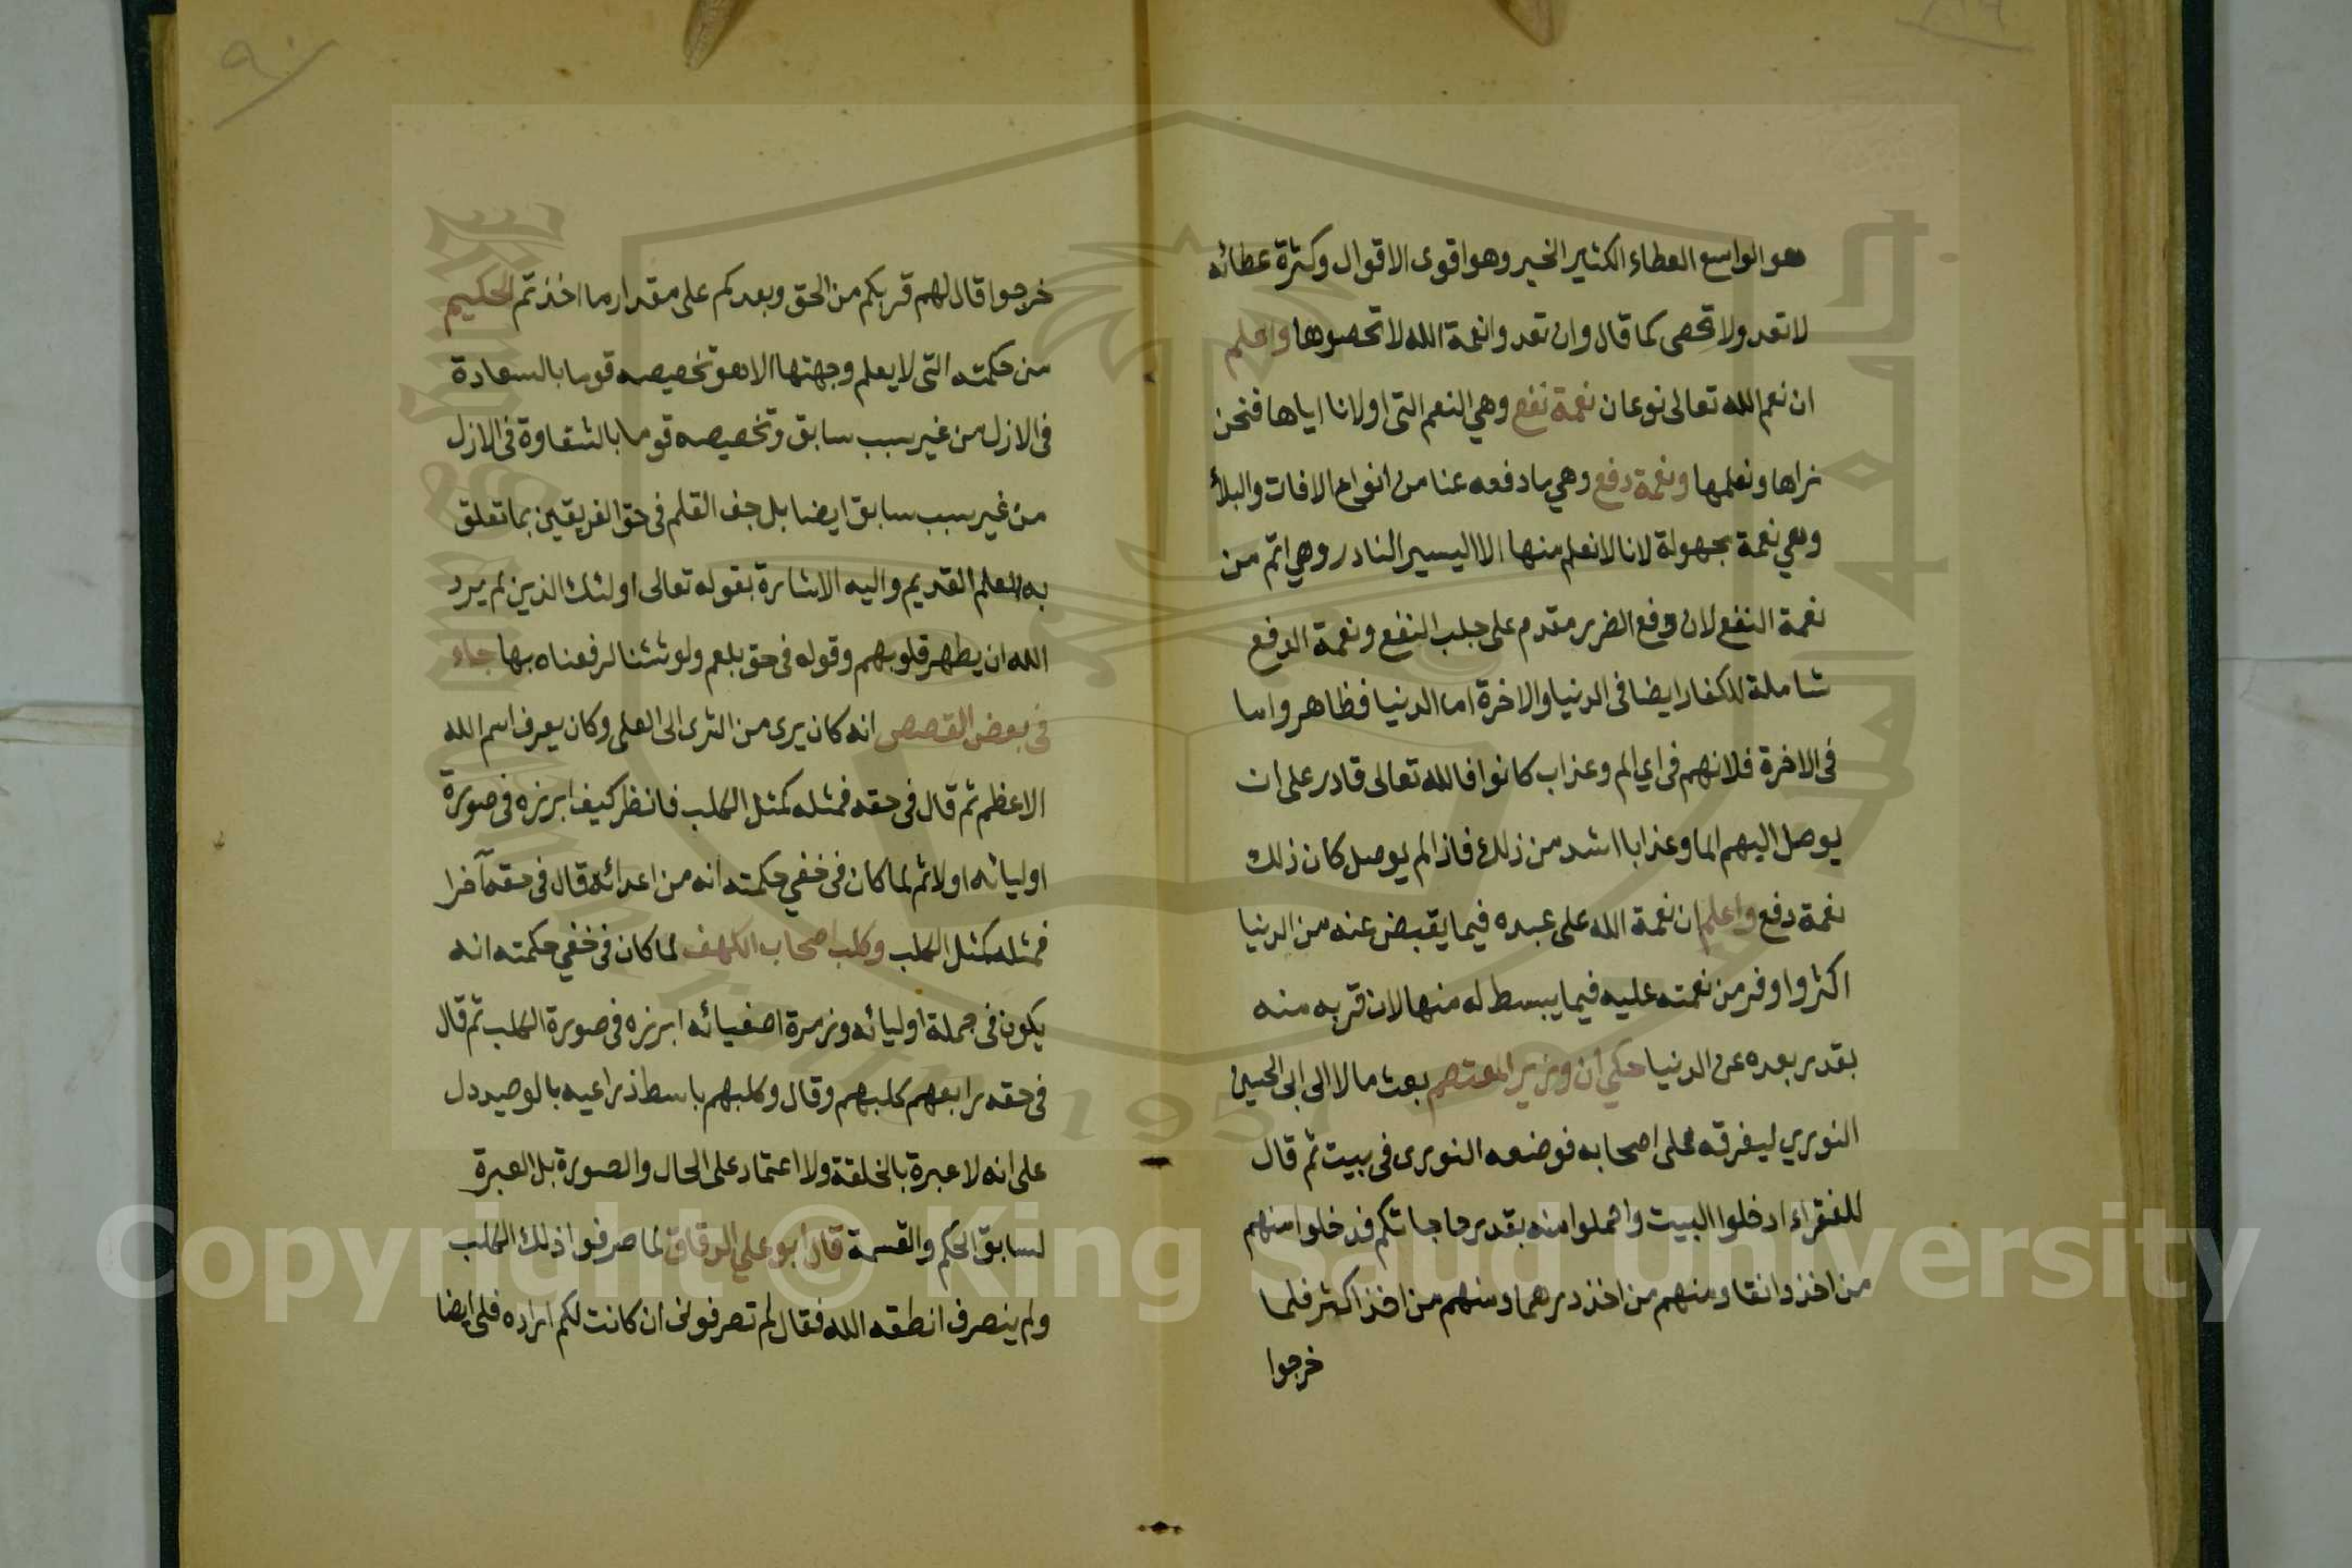 هو الواسع العطاء الكثير الخير وهو اقوى الاقوال وكثرة عطائه
لا تعد ولا تحصى كما قال وان تعدوا نعمة الله لا تحصوها واعلم
ان نعم الله تعالى نوعان نعمة نفع وهي النعم التى اولانا اياها فنحن
نراها ونعلمها ونعمة دفع وهي ما دفعه عنا من انواع الافات والبلاء
وهي نعمة مجهولة لانا لا نعلم منها الا اليسير النادر وهي اتم من
نعمة النفع لان دفع الضرر مقدم على جلب النفع ونعمة الدفع
شاملة للكفار ايضا فى الدنيا والاخرة اما الدنيا فظاهر واما
فى الاخرة فلانهم فى اي الم وعذاب كانوا فالله تعالى قادر على ان
يوصل اليهم الما وعذابا اشد من ذلك فاذا لم يوصل كان ذلك
نعمة دفع واعلم ان نعمة الله على عبده فيما يقبض عنه من الدنيا
اكثر واوفر من نعمته عليه فيما يبسط له منها لان قربه منه
بقدر بعده عن الدنيا حكي ان وزير المعتصم بعث مالا الى ابى الحسين
النوري ليفرقه على اصحابه فوضعه النورى فى بيت ثم قال
للفقراء ادخلوا البيت واحملوا منه بقدر حاجاتكم فدخلوا منهم
من اخذ دانقا ومنهم من اخذ درهما ومنهم من اخذ اكثر فلما
خرجوا
٩٠
خرجوا قال لهم قربكم من الحق وبعدكم على مقدار ما اخذتم الحكيم
من حكمته التى لا يعلم وجهتها الا هو تخصيصه قوما بالسعادة
فى الازل من غير سبب سابق وتخصيصه قوما بالشقاوة فى الازل
من غير سبب سابق ايضا بل جف القلم فى حق الفريقين بما تعلق
به العلم القديم واليه الاشارة بقوله تعالى اولئك الذين لم يرد
الله ان يطهر قلوبهم وقوله فى حق بلعم ولو شئنا لرفعناه بها جاء
فى بعض القصص انه كان يرى من الثرى الى العلى وكان يعرف اسم الله
الاعظم ثم قال فى حقه فمثله كمثل الكلب فانظر كيف ابرزه فى صورة
اوليائه اولا ثم لما كان فى خفي حكمته انه من اعدائه قال فى حقه آخرا
فمثله كمثل الكلب وكلب اصحاب الكهف لما كان فى خفي حكمته انه
يكون فى جملة اوليائه وزمرة اصفيائه ابرزه فى صورة الكلب ثم قال
فى حقه رابعهم كلبهم وقال وكلبهم باسط ذراعيه بالوصيد دل
على انه لا عبرة بالخلقة ولا اعتماد على الحال والصورة بل العبرة
لسابق الحكم والقسمة قال ابو علي الدقاق لما صرفوا ذلك الكلب
ولم ينصرف انطقه الله فقال لم تصرفونى ان كانت لكم ارادة فلى ايضا
Copyright © King Saud University
1957